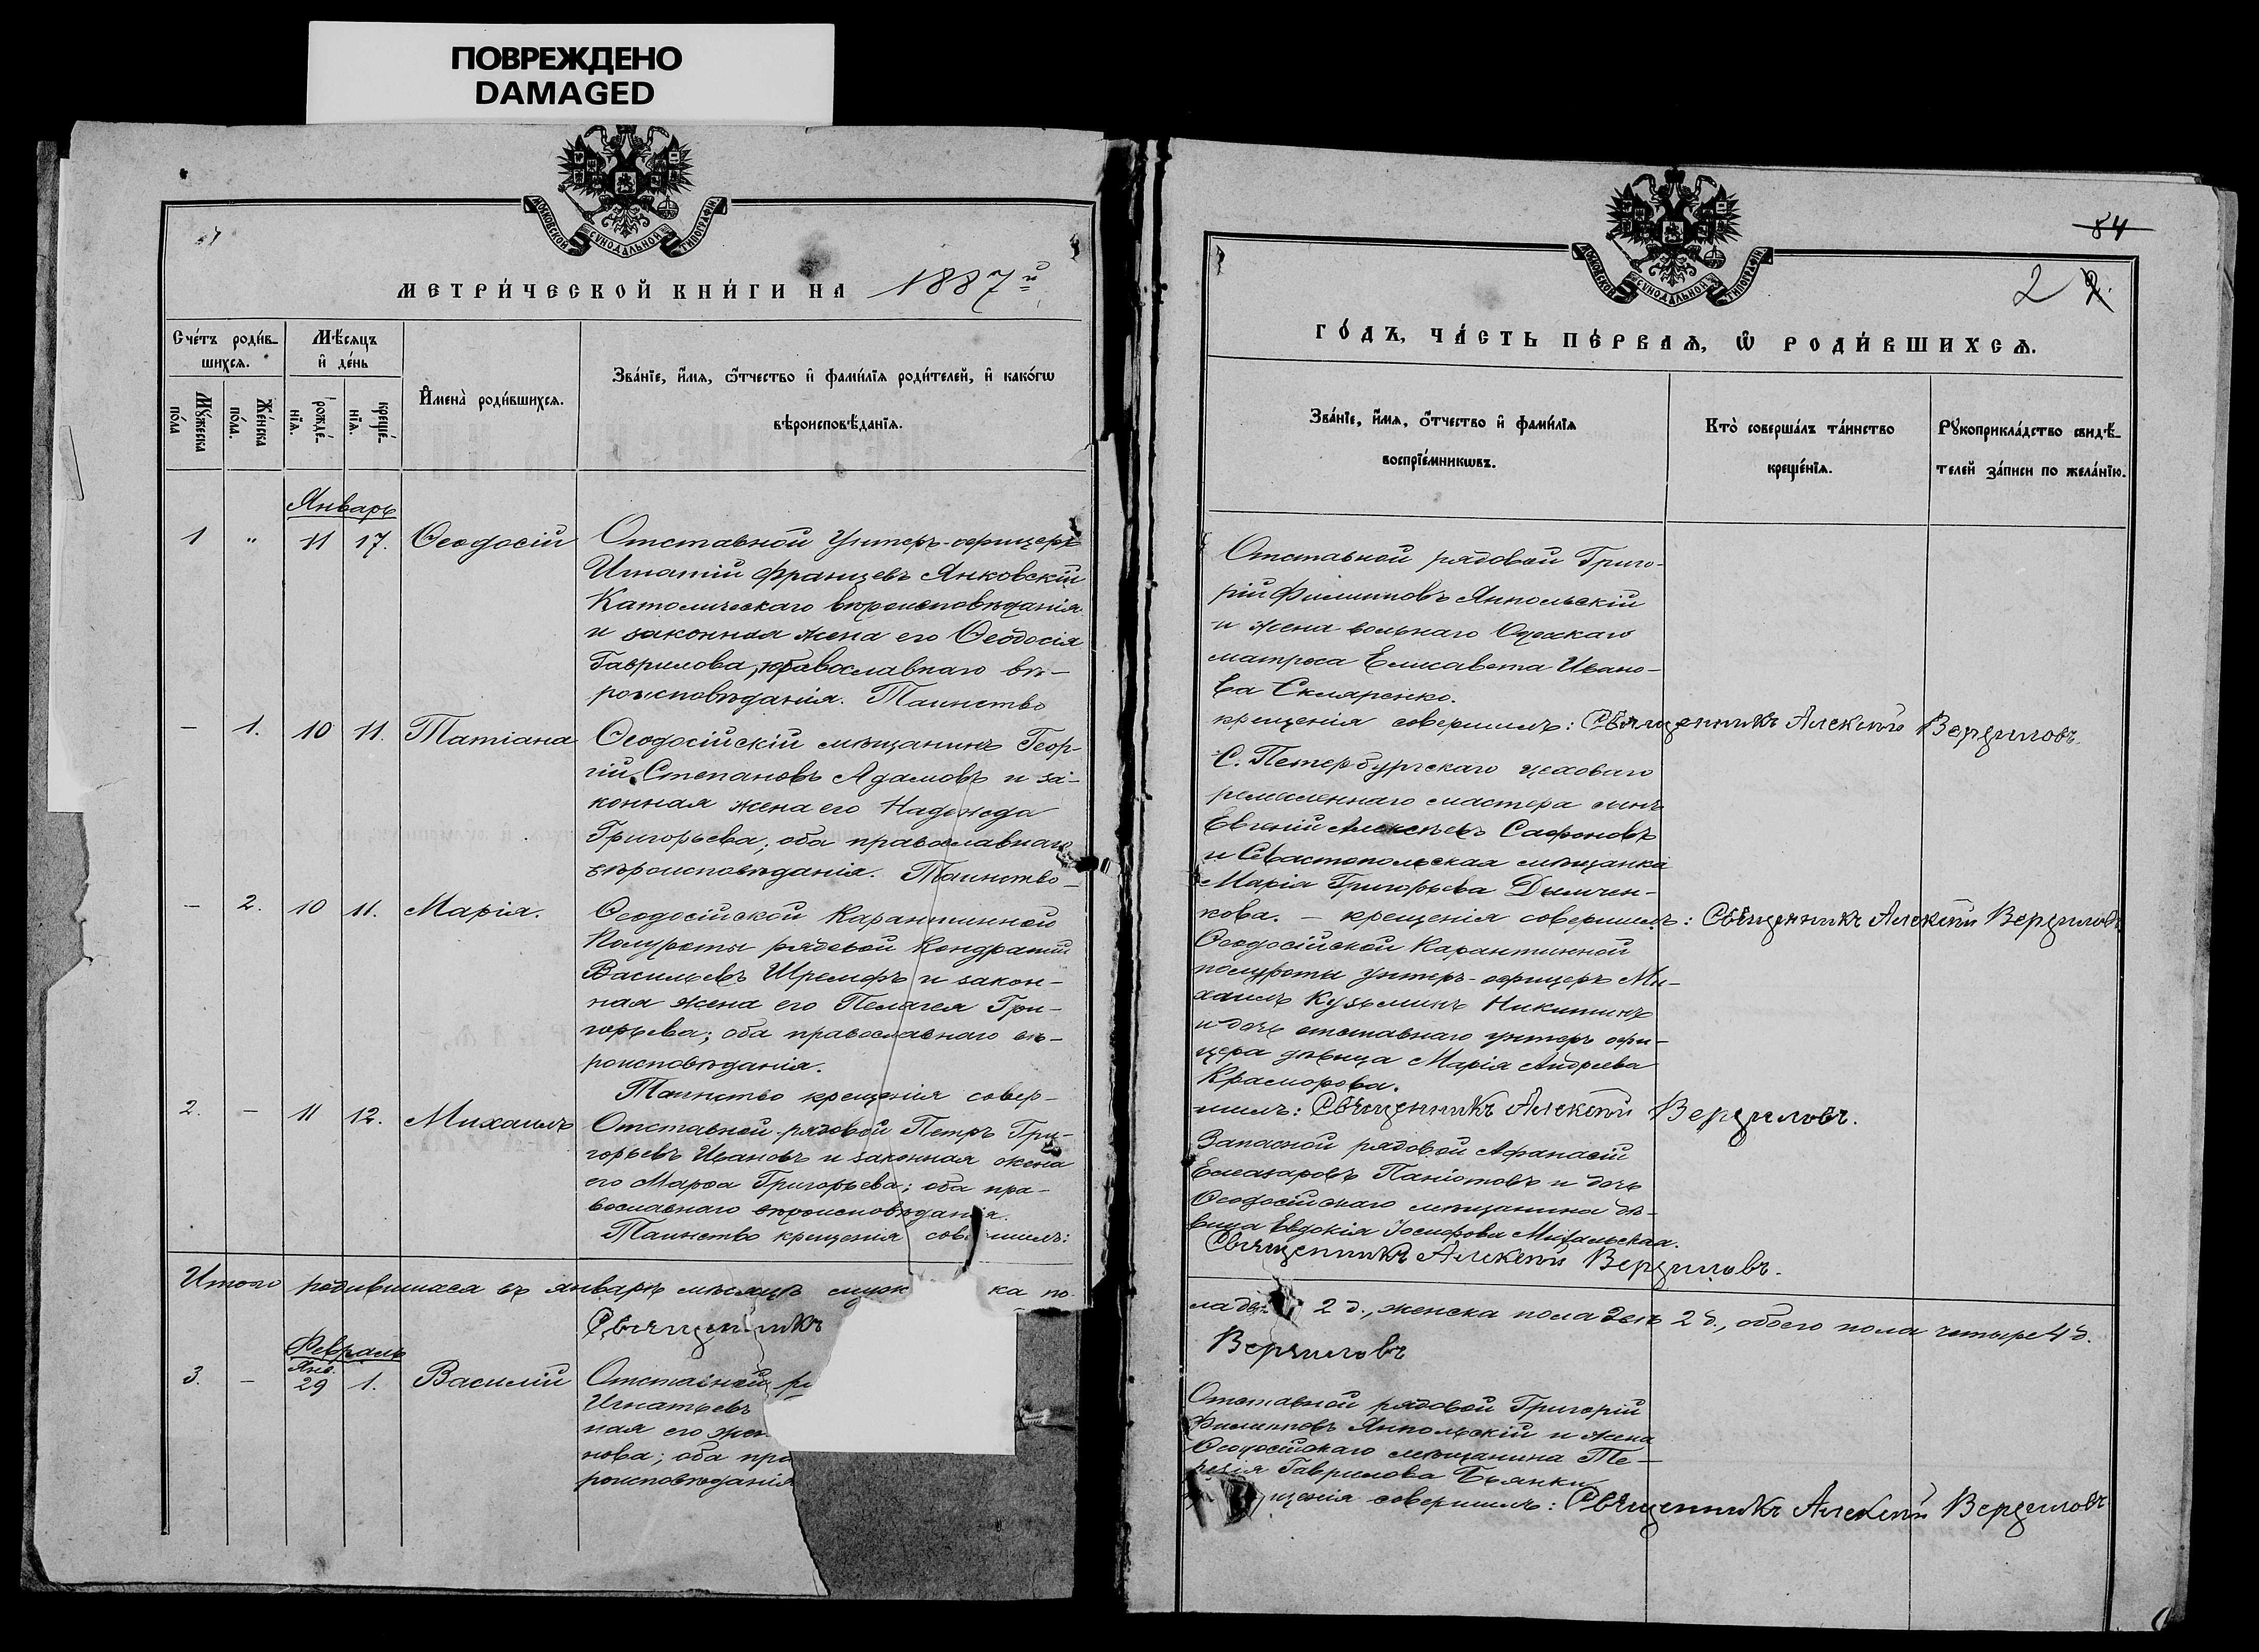 ПОВРЕЖДЕНО
DAMAGED
МОСКОВСКОЙ СѴНОДАЛЬНОЙ ТИПОГРАФІИ
МЕТРИ́ЧЕСКОЙ КНИ́ГИ НА 1887й
Сче́тъ роди́в-
шихся.
Мѣ́сяцъ
и҆ де́нь
Мꙋ́жеска
по́ла
Же́нска
по́ла.
рожде́-
нїя.
креще́-
нїя.
И҆мена̀ роди́вшихся.
Зва́нїе, и҆́мя, ѻ҆́тчество и҆ фами́лїя роди́телей, и҆ како́гѡ
вѣроисповѣ́данїя.
Январь
1 " 11 17. Ѳеодосій
Отставной Унтеръ-офицеръ
Игнатій Францевъ Янковскій
Католическаго вѣроисповѣданія
и законная жена его Ѳеодосія
Гаврилова, православнаго вѣ-
роисповѣданія. Таинство
— 1. 10 11. Татіана
Ѳеодосійскій мѣщанинъ Геор-
гій Степановъ Адамовъ и за-
конная жена его Надежда
Григорьева; оба православнаго
вѣроисповѣданія. Таинство
— 2. 10 11. Марія.
Ѳеодосійской Карантинной
Полуроты рядовой Кондратій
Васильевъ и закон-
ная жена его Пелагея Гри-
горьева; оба православнаго вѣ-
роисповѣданія.
Таинство крещенія совер-
2. — 11 12. Михаилъ
Отставной рядовой Петръ Гри-
горьевъ Ивановъ и законная жена
его Марѳа Григорьева; оба пра-
вославнаго вѣроисповѣданія.
Таинство крещенія сов шилъ:
Итого родившихся въ январѣ мѣсяцѣ муж ка по-
Священникъ
Февраль
Янв.
3. — 29 1. Василій
Отставной р
Игнатьевъ
ная его жен
нова; оба пра
роисповѣданія
МОСКОВСКОЙ СѴНОДАЛЬНОЙ ТИПОГРАФІИ
84
2 2.
ГО́ДЪ, ЧА́СТЬ ПЕ́РВАЯ, Ѡ҆ РОДИ́ВШИХСЯ.
Зва́нїе, и҆́мя, ѻ҆́тчество и҆ фами́лїя
воспрїе́мникѡвъ.
Кто̀ соверша́лъ та́инство
креще́нїя.
Рꙋкоприкла́дство свидѣ́-
телей за́писи по жела́нїю.
Отставной рядовой Григо-
рій Филиповъ Япольскій
и жена вольнаго Одескаго
матроса Елисавета Ивано-
ва Скляренко.
крещенія совершилъ: Священникъ Алексій Вердиловъ.
С. Петербургскаго цеховаго
ремесленнаго мастера сынъ
Евгеній Алексѣевъ Сафоновъ
и Севастопольская мѣщанка
Марія Григорьева Дымчен-
кова. — крещенія совершилъ: Священникъ Алексій Вердиловъ
Ѳеодосійской Карантинной
полуроты унтеръ-офицеръ Ми-
хаилъ Кузьминъ Никитинъ
и дочь отставнаго унтеръ офи-
цера дѣвица Марія Андреева
Красморова.
шилъ: Священникъ Алексій Вердиловъ.
Запасной рядовой Афанасій
Елеазаровъ Паніотовъ и дочь
Ѳеодосійскаго мѣщанина дѣ-
вица Евдокія Іосифова
Священникъ Алексій Вердиловъ.
ла два 2 д., женска пола двѣ 2 д., обоего пола четыре 4 д.
Вердиловъ
Отставной рядовой Григорій
Филиповъ Япольскій и жена
Ѳеодосійскаго мѣщанина Те-
резія Гаврилова Бьянки
щенія совершилъ: Священникъ Алексій Вердиловъ